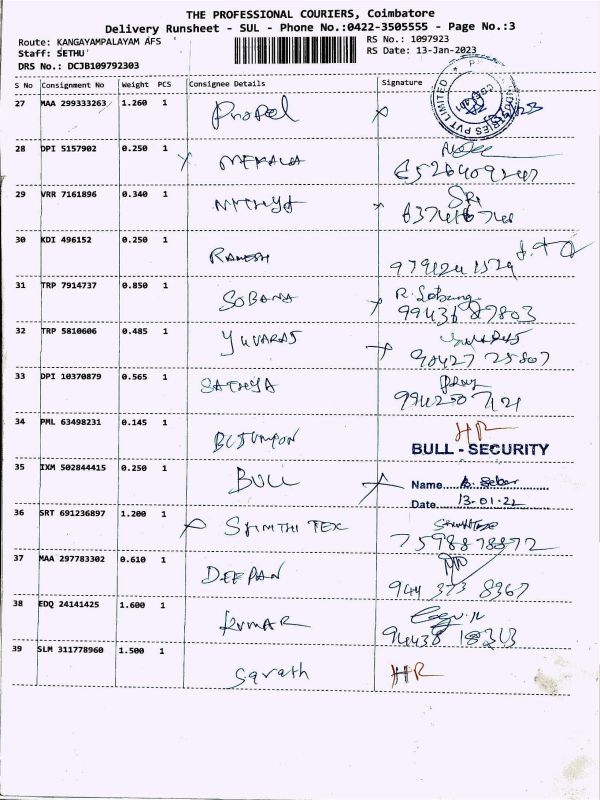 THE PROFESSIONAL COURIERS, Coimbatore
Delivery Runsheet - SUL - Phone No.:0422-3505555 - Page No.:3
Route: KANGAYAMPALAYAM AFS
RS No.: 1097923
Staff: SETHU
RS Date: 13-Jan-2023
DRS No.: DCJB109792303
S No Consignment No Weight PCS Consignee Details Signature
27 MAA 299333263 1.260 1 Propel
28 DPI 5157902 0.250 1 MEKALA
29 VRR 7161896 0.340 1 NITHYA
30 KDI 496152 0.250 1 RAMESH
31 TRP 7914737 0.850 1 SOBANA
99436 27803
32 TRP 5810606 0.485 1 YUVARAJ
90427 25807
33 DPI 10370879 0.565 1 SATHYA
34 PML 63498231 0.145 1 HR
BULL - SECURITY
35 IXM 502844415 0.250 1 BULL
Name
Date 13-01-22
36 SRT 691236897 1.200 1 TEX
7598878872
37 MAA 297783302 0.610 1 DEEPAN
944 373 8367
38 EDQ 24141425 1.600 1 KUMAR
94438 18313
39 SLM 311778960 1.500 1 Sarath HR